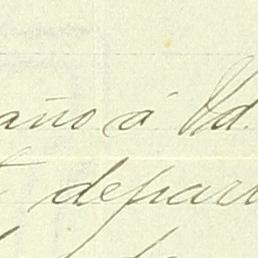 año á Vd.
depar